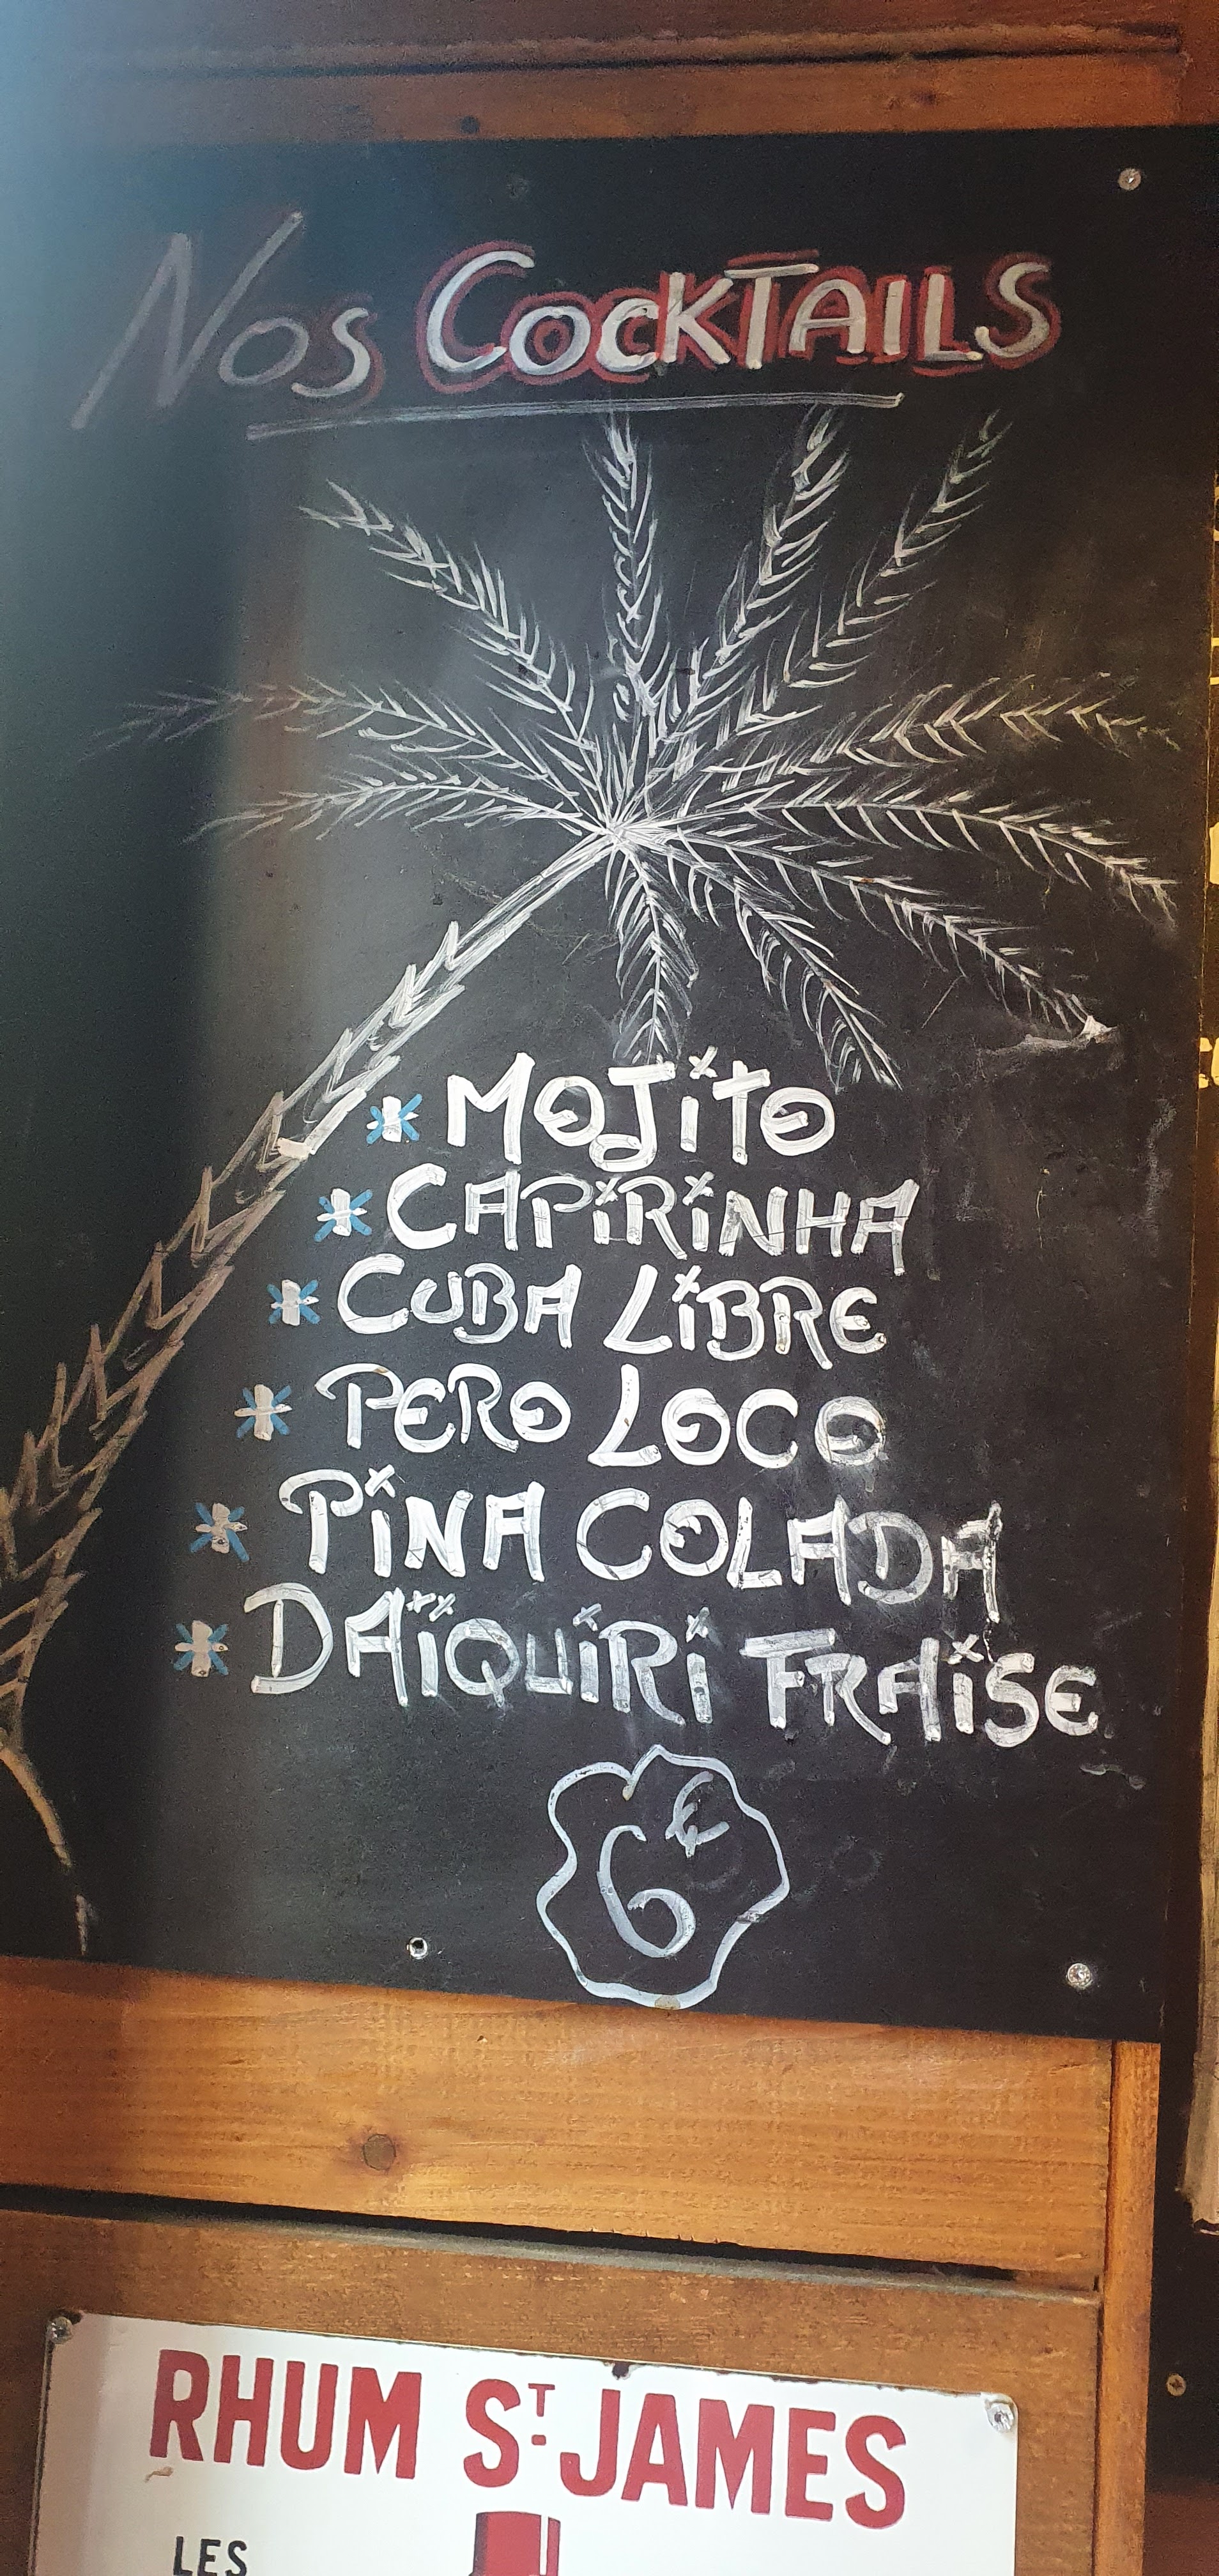 Nos COCKTAILS
* MOJiTO
* CAPiRiNHA
* CUBA LiBRE
* PERO LOCO
* PiNA COLADA
* DAÏQUiRi FRAiSE
6€
RHUM ST JAMES
LES